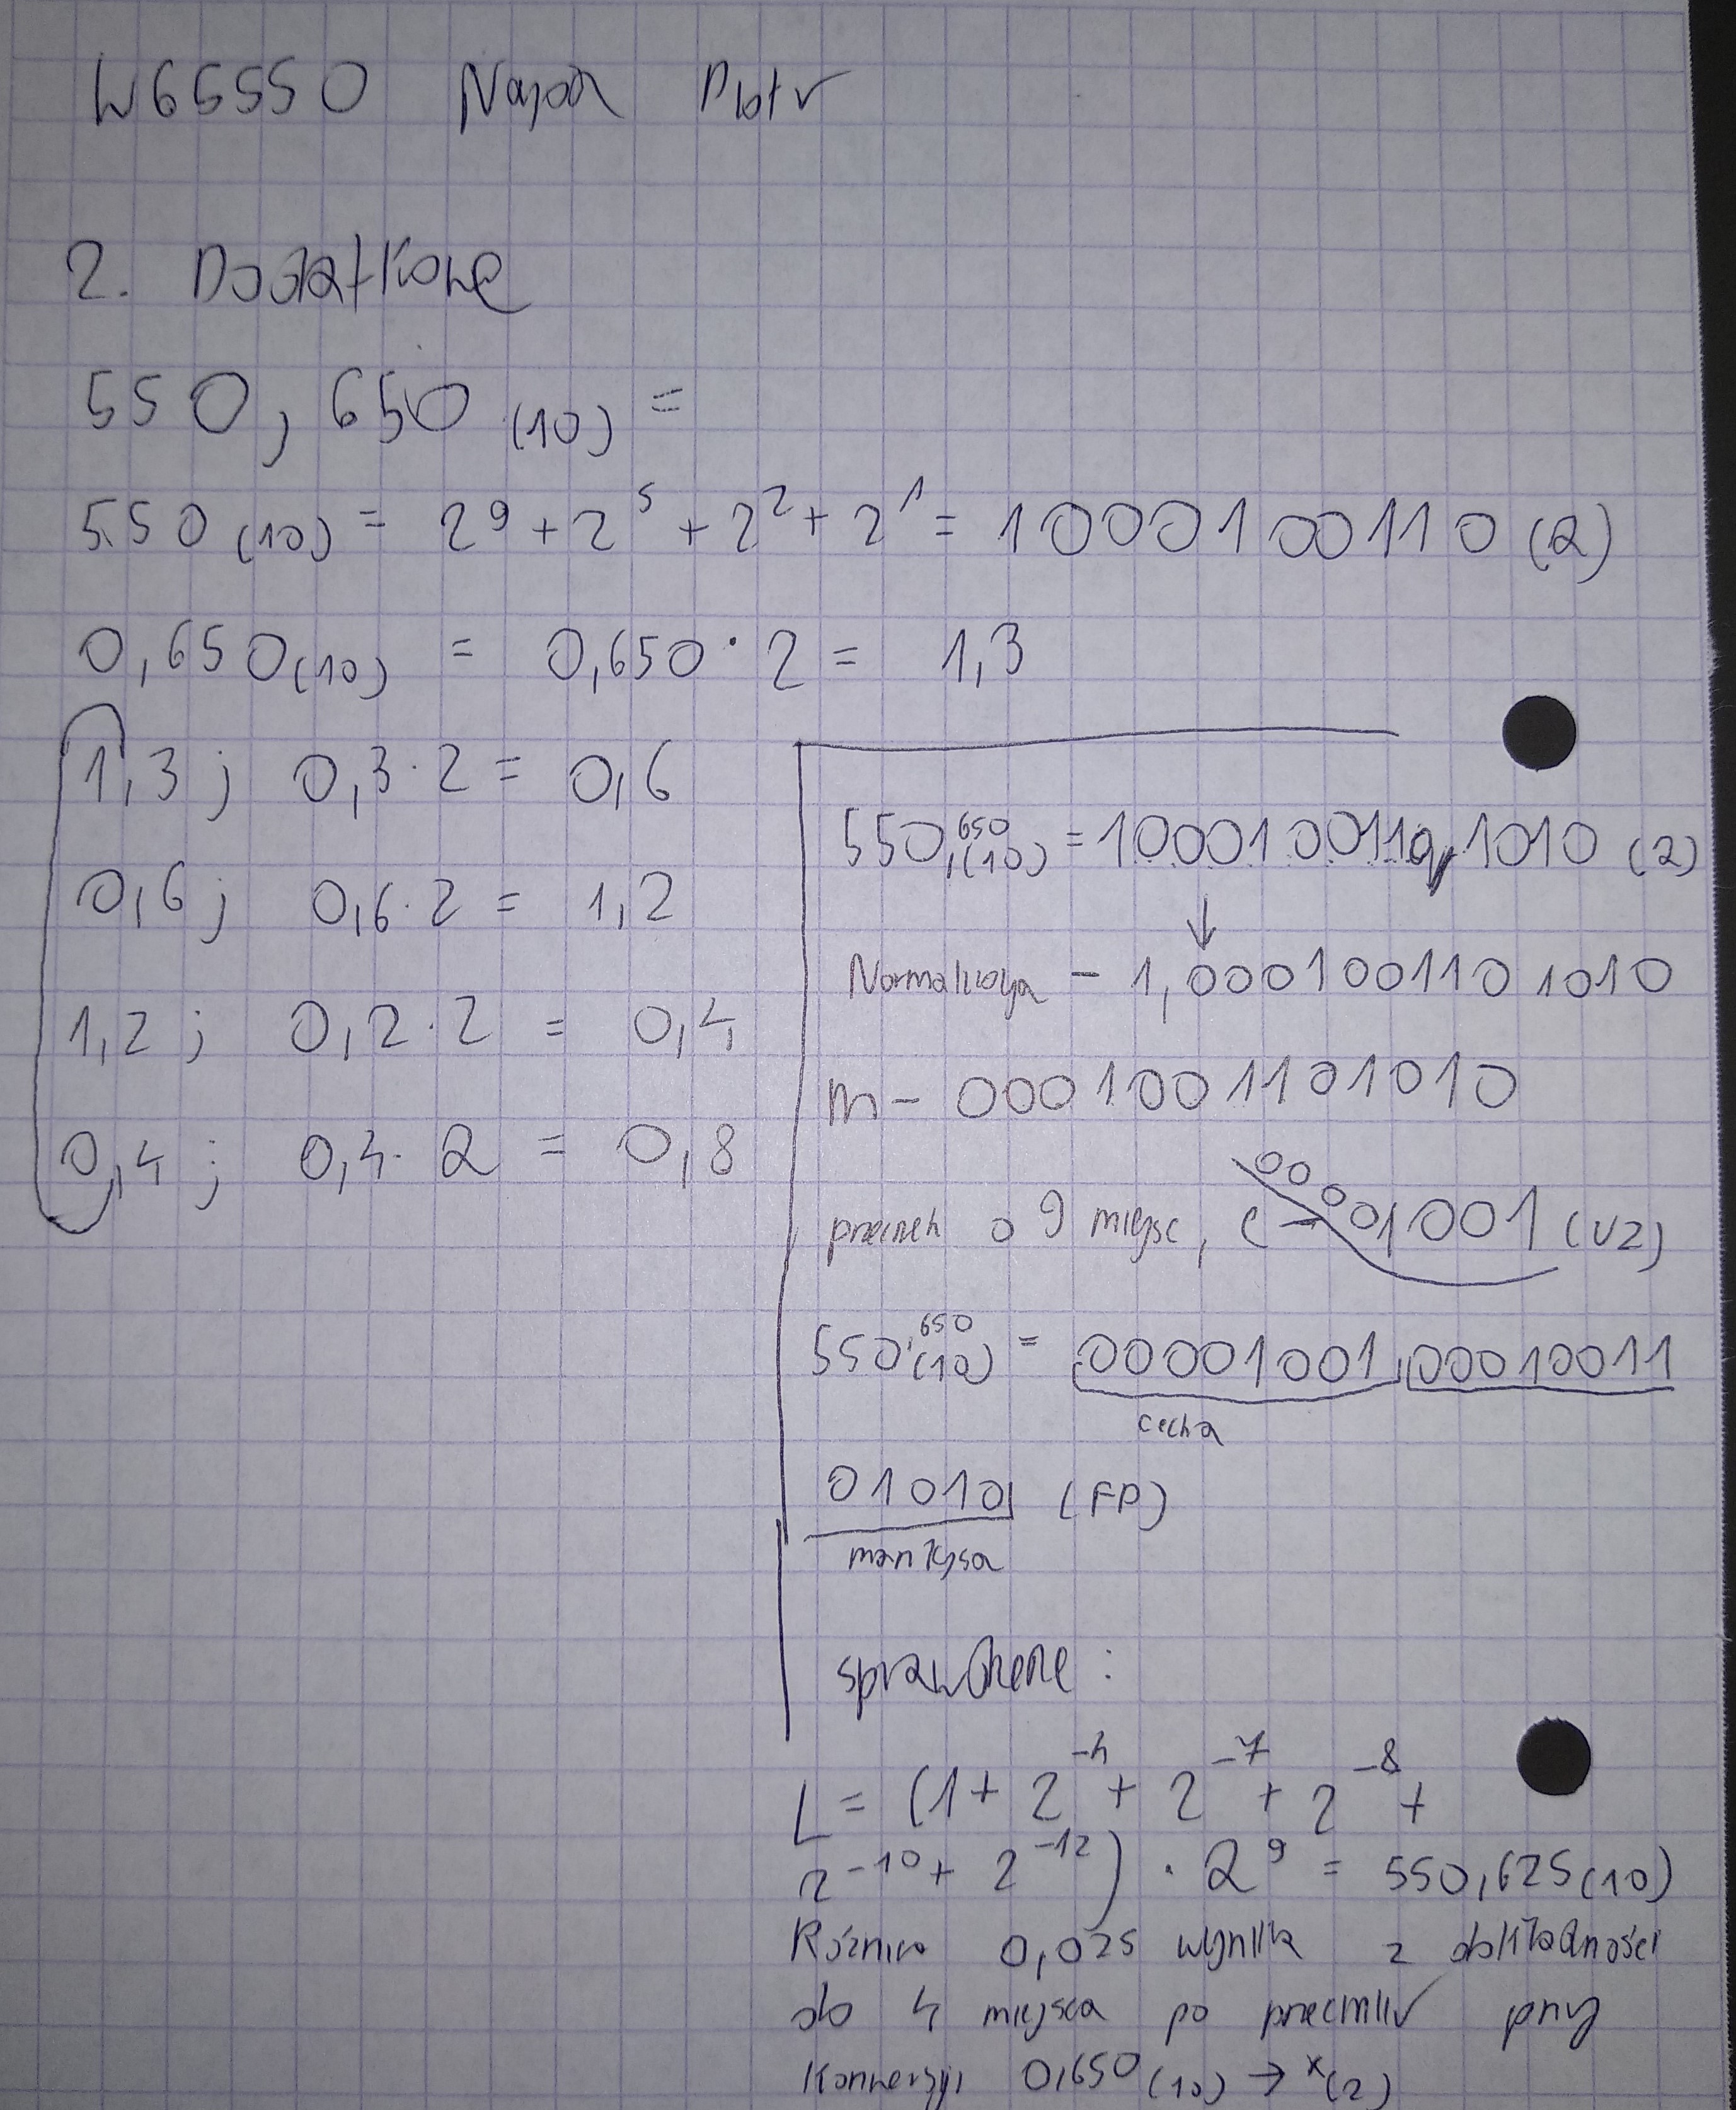 W66550 Piotr
2. Dodatkowe
550,650 (10) =
550 (10) = 2⁹ + 2⁵ + 2² + 2¹ = 1000100110 (2)
0,650(10) = 0,650 · 2 = 1,3
1,3 ; 0,3 · 2 = 0,6
0,6 ; 0,6 · 2 = 1,2
1,2 ; 0,2 · 2 = 0,4
0,4 ; 0,4 · 2 = 0,8
550,650 (10) = 1000100110,1010 (2)
↓
Normalizacja - 1,0001001101010
m - 0001001101010
przecinek o 9 miejsc, c → 00001001 (U2)
550,650 (10) = 00001001 00010011
cecha
01010 (FP)
mantysa
sprawdzenie :
L = (1 + 2⁻⁴ + 2⁻⁷ + 2⁻⁸ +
2⁻¹⁰ + 2⁻¹²) · 2⁹ = 550,625(10)
Różnica 0,025 wynika z dokładności
do 4 miejsca po przecinku przy
Konwersji 0,650 (10) → x(2)